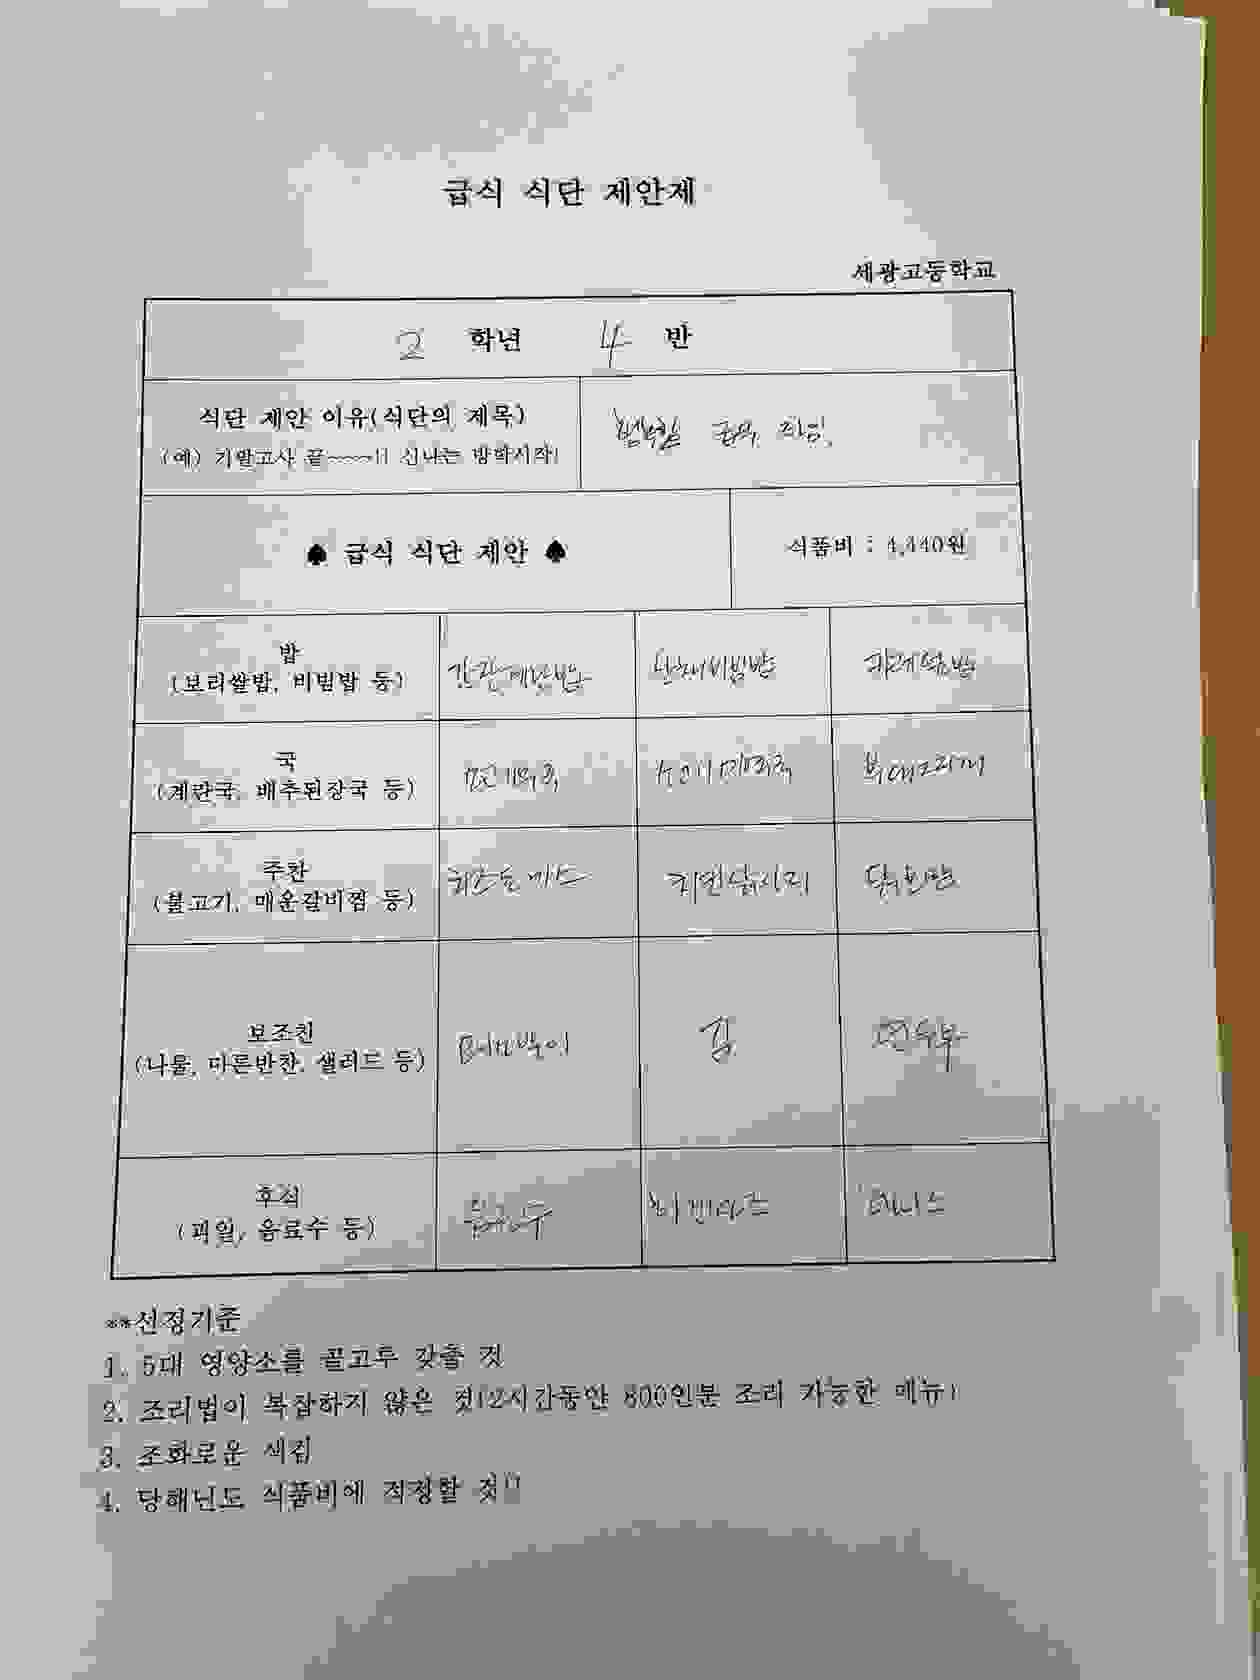 급식 식단 제안제
세광고등학교
2 학년 4 반
식단 제안 이유(식단의 제목)
(예) 기말고사 끝~~~!! 신나는 방학시작!
♠ 급식 식단 제안 ♠
식품비 : 4,440원
밥
(보리쌀밥, 비빔밥 등)
간장계란밥 야채비빔밥 카레덮밥
국
(계란국, 배추된장국 등)
소고기미역국 부대찌개
주찬
(불고기, 매운갈비찜 등)
치즈돈까스
보조찬
(나물, 마른반찬, 샐러드 등)
김 연두부
후식
(과일, 음료수 등)
**선정기준
1. 5대 영양소를 골고루 갖출 것
2. 조리법이 복잡하지 않은 것(2시간동안 800인분 조리 가능한 메뉴)
3. 조화로운 색감
4. 당해년도 식품비에 적정할 것!!